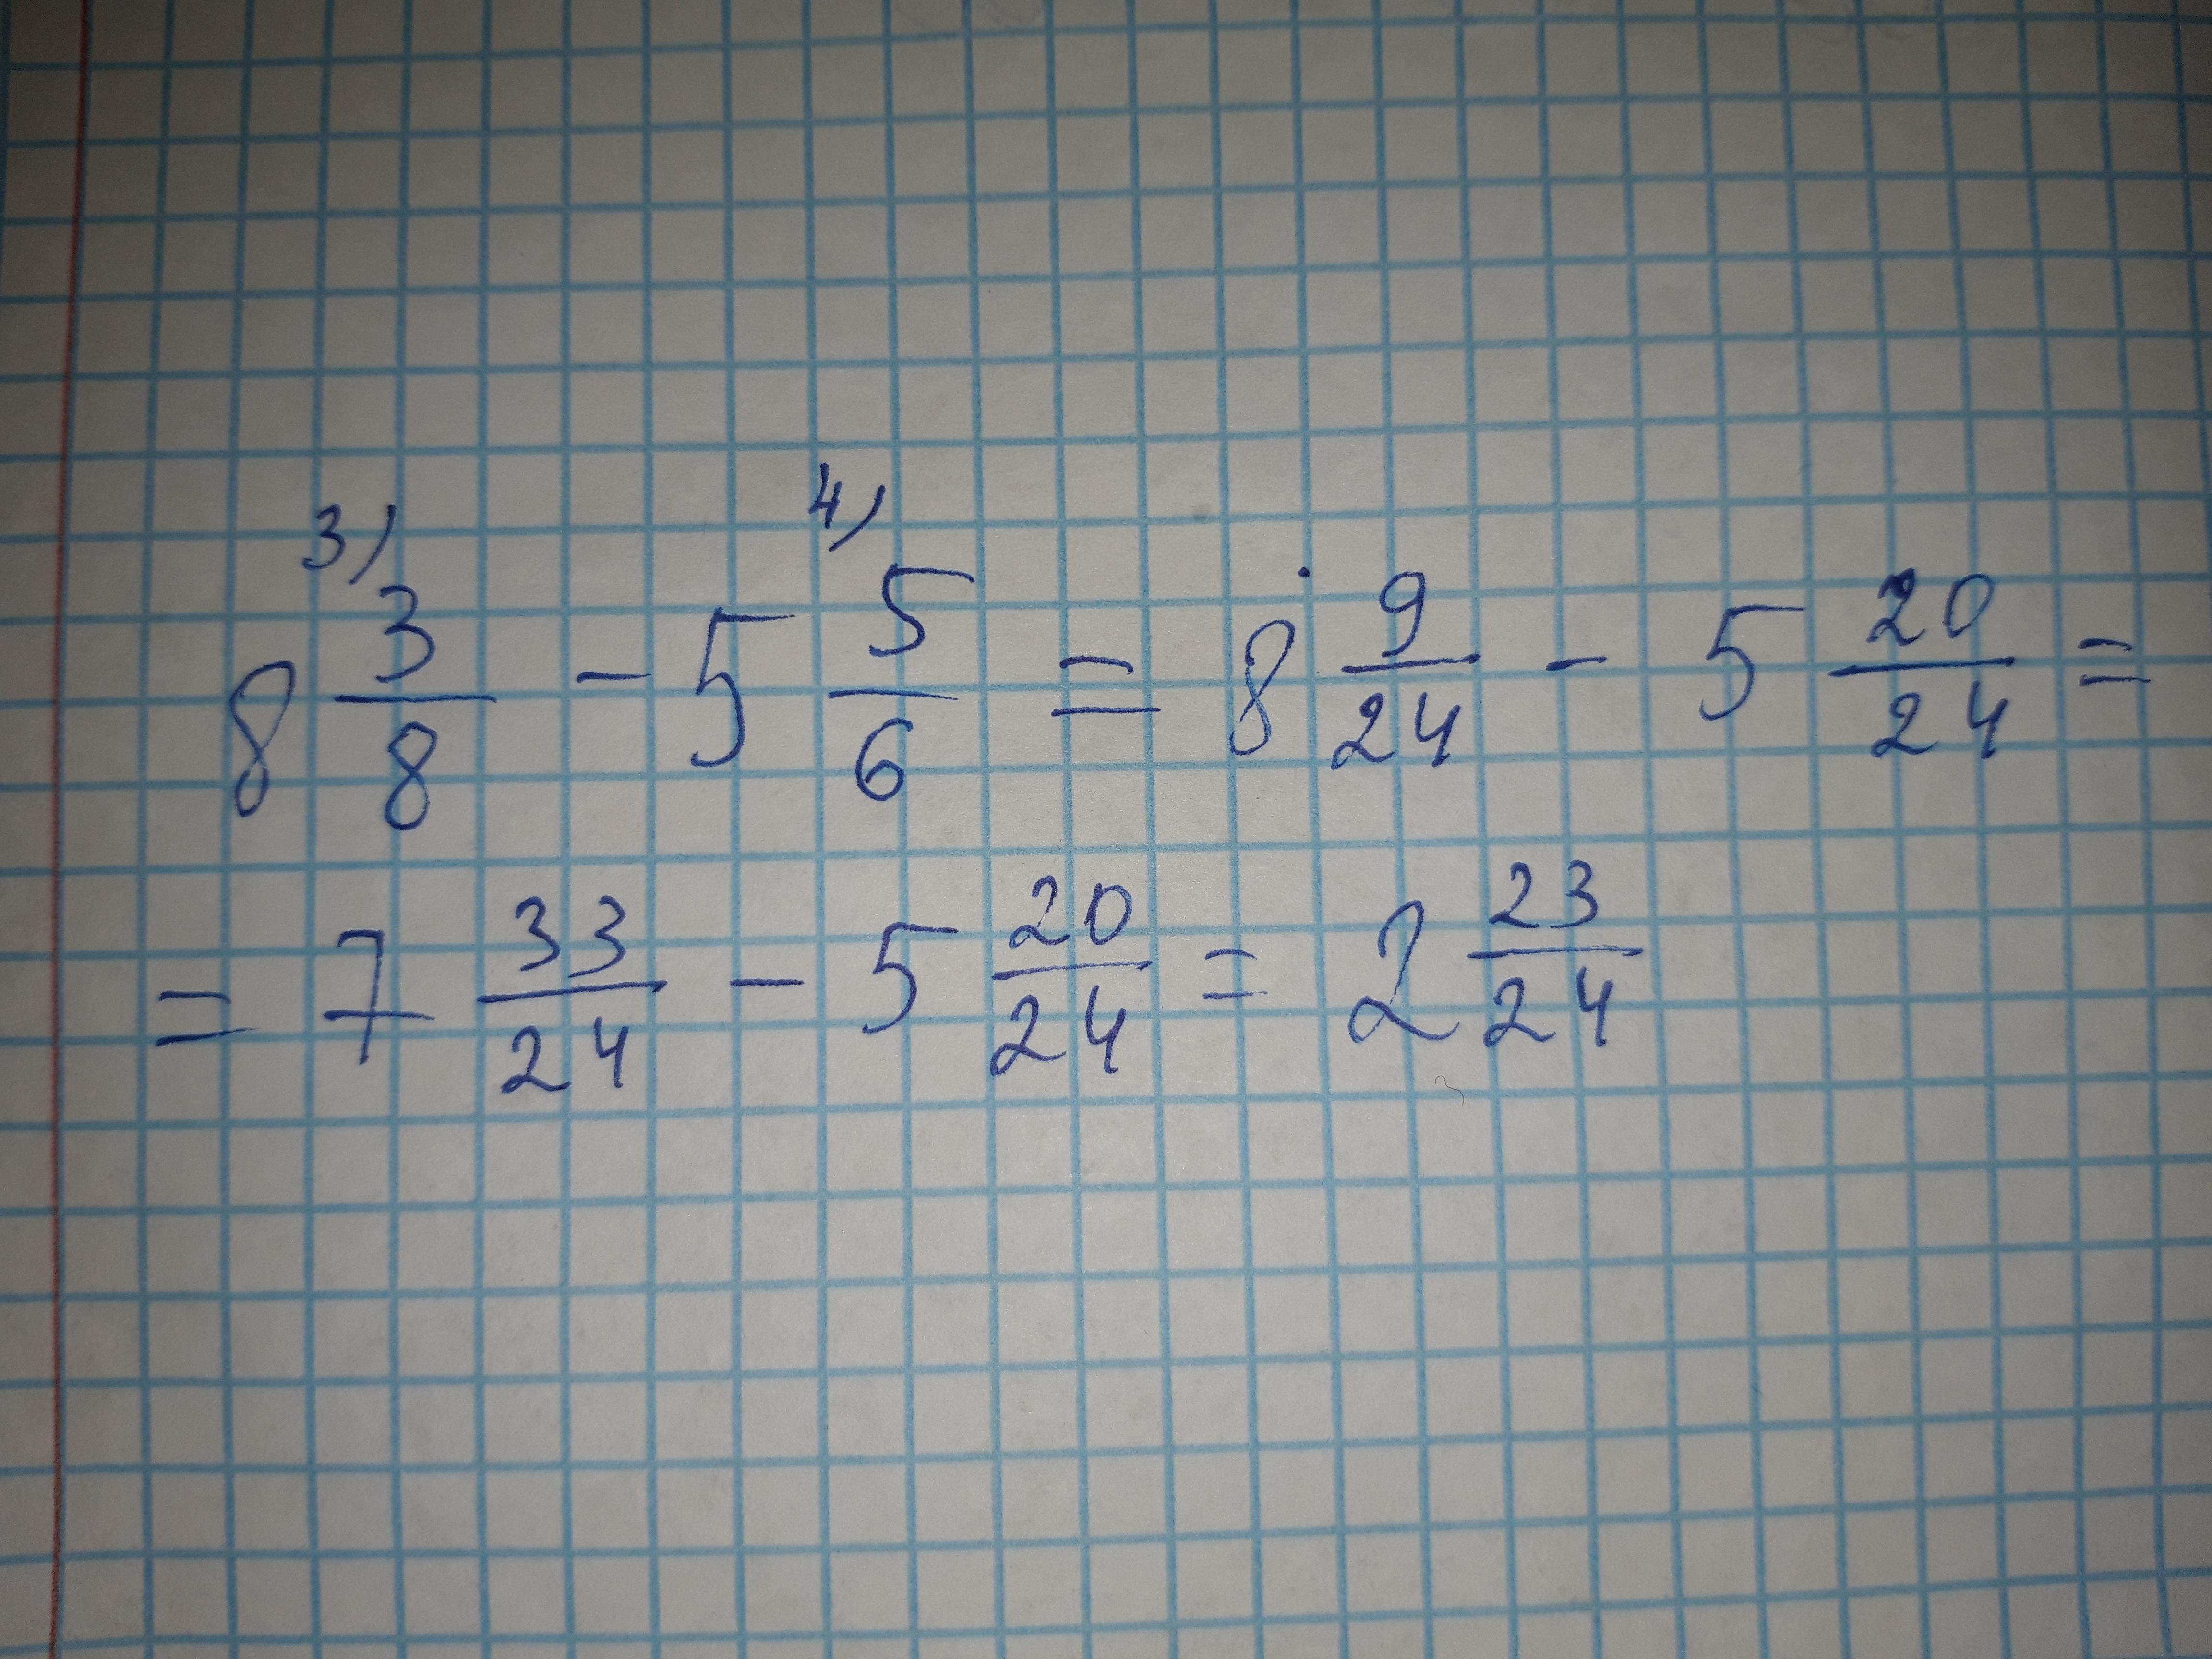 8 3) 3/8 - 5 4) 5/6 = 8 9/24 - 5 20/24 =
= 7 33/24 - 5 20/24 = 2 23/24